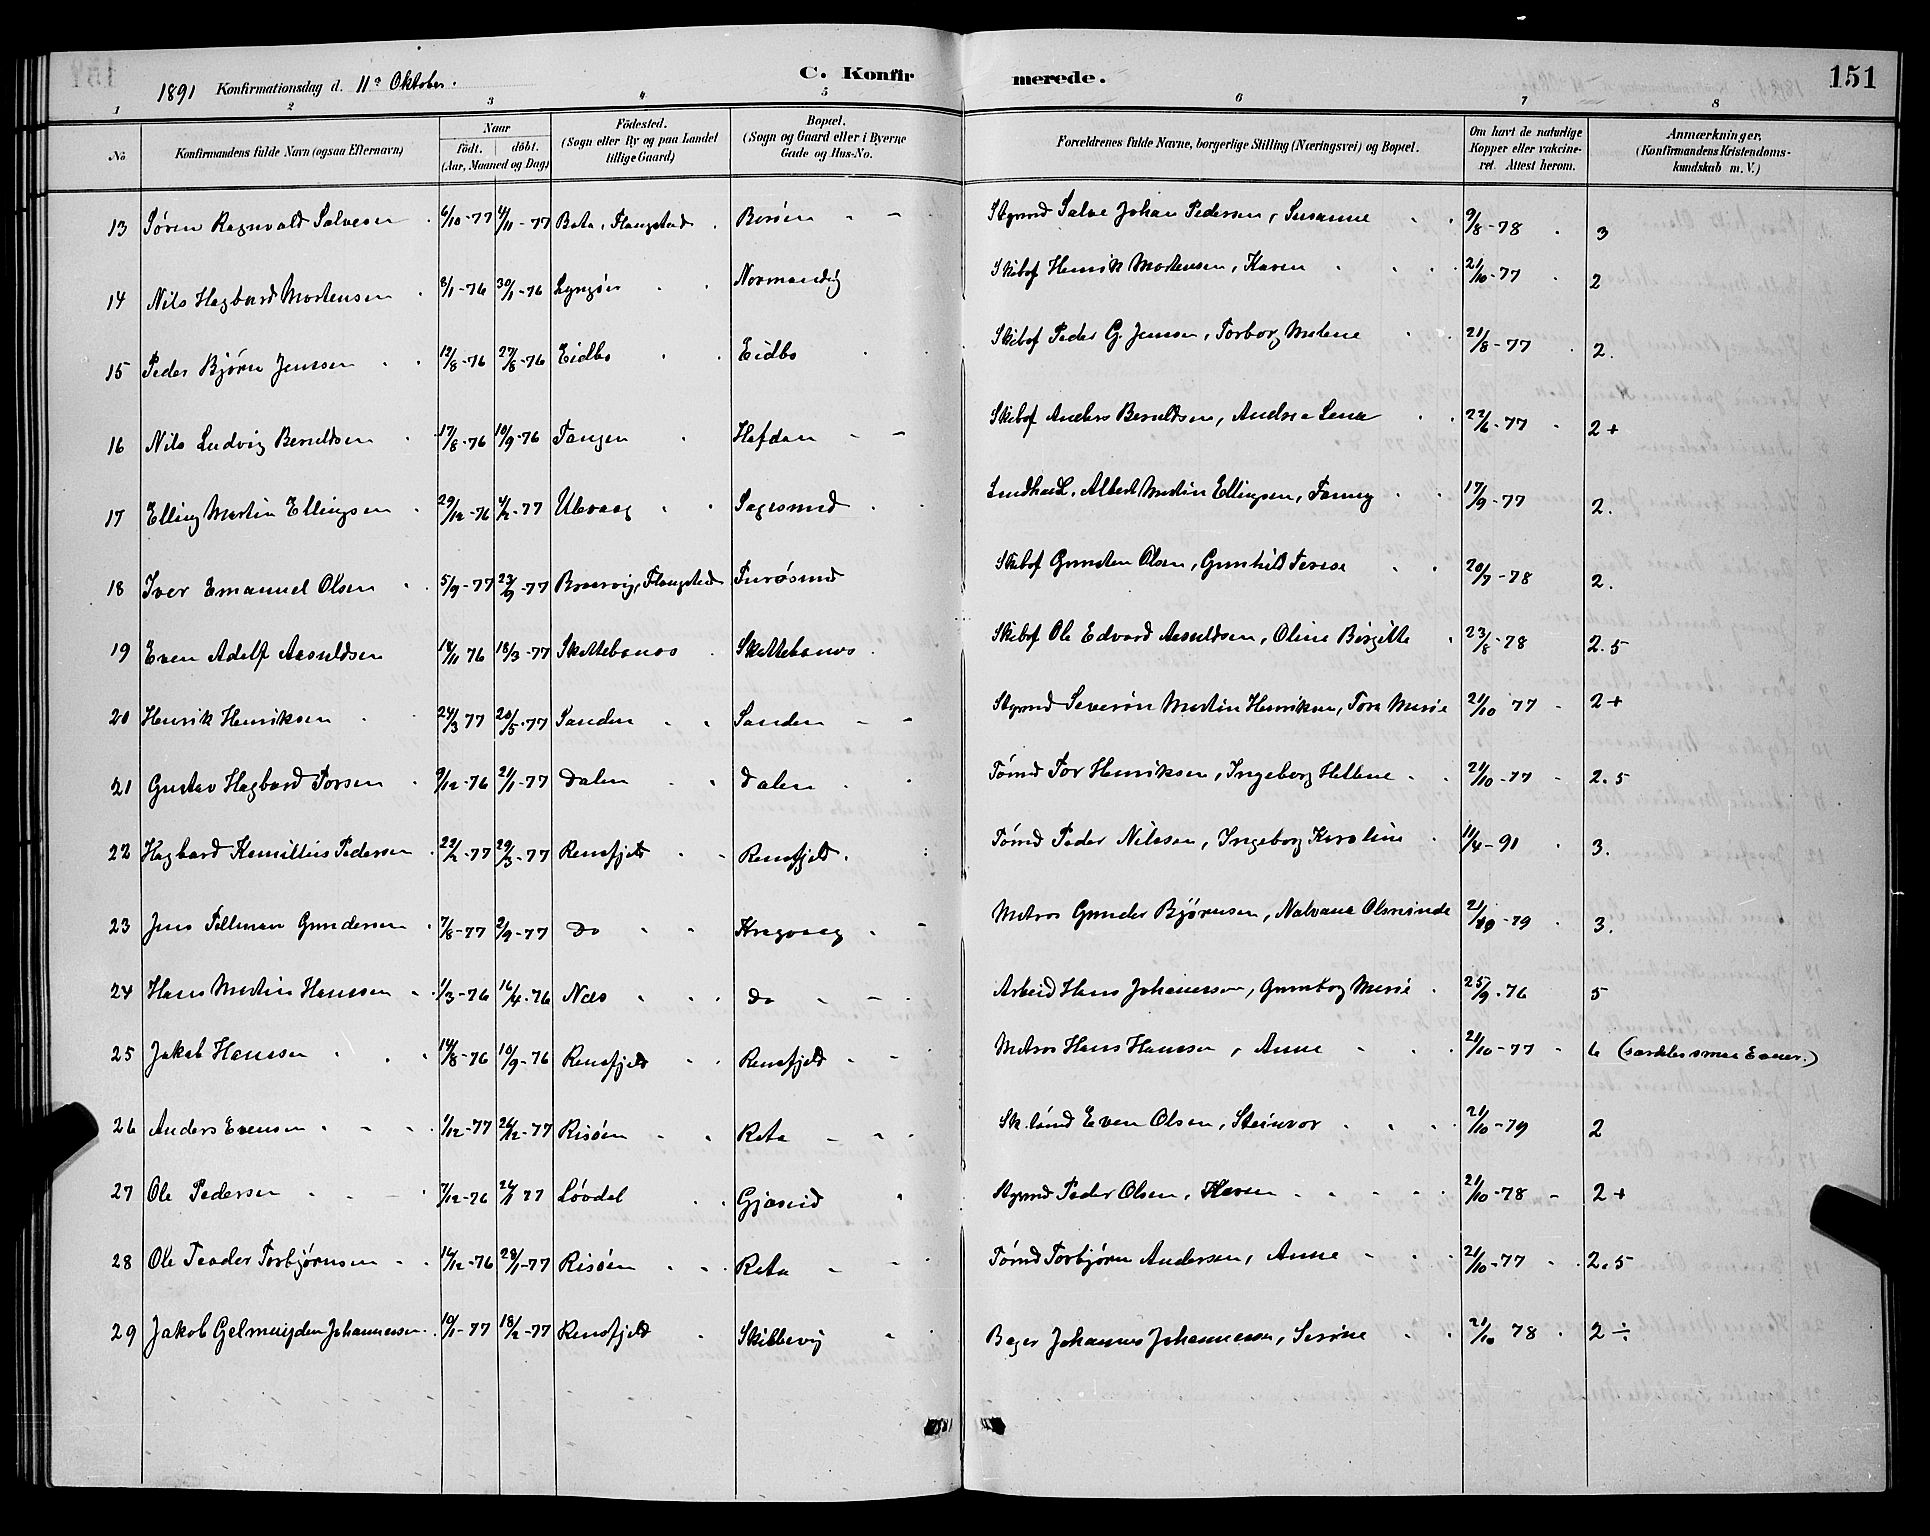 1891 Konfirmationsdag d. 11te Oktober.
C. Konfir merede.
151
1 2 3 4 5 6 7 8
No
Konfirmandens fulde Navn (ogsaa Efternavn)
Naar
født. døbt.
(Aar, Maaned og Dag)
Fødested.
(Sogn eller By og paa Landet
tillige Gaard)
Bopæl.
(Sogn og Gaard eller i Byerne
Gade og Hus-No.
Forældrenes fulde Navne, borgerlige Stilling (Næringsvei) og Bopæl.
Om havt de naturlige
Kopper eller vakcine-
ret. Attest herom.
Anmærkninger,
(Konfirmandens Kristendoms-
kundskab m. V.)
13 Søren Ragnvald Salvesen 6/10-77 4/11-77 Bota, Flangstad Borøen Styrmd Salve Johan Pedersen, Susanne 9/8-78 3
14 Nils Hagbard Mortensen 8/1-76 30/1-76 Lyngør Normandvig Skibsf Henrik Mortensen, Karen 21/10-77 2
15 Peder Bjørn Jenssen 12/8-76 27/8-76 Eidbo Eidbo Skibsf Peder G. Jenssen, Torborg Malene 21/8-77 2.
16 Nils Ludvig Beruldsen 17/8-76 10/9-76 Tangen Hafdan Skibsf Anders Beruldsen, Andrea Lena 22/6-77 2+
17 Elling Martin Ellingsen 29/12-76 4/2-77 Ulevaag Sagesund Albert Martin Ellingsen, Fanny 17/9-77 2.
18 Iver Emanuel Olsen 5/9-77 23/9-77 Braarvig, Flangstad Furøsund Skibsf Gunsten Olsen, Gunhild Terese 20/7-78 2.
19 Even Adolf Aasuldsen 18/3-77 Skottebanos Skottebanos Skibsf Ole Edvard Aasuldsen, Oline Birgitte 23/8-78 2.5
20 Henrik Henriksen 24/3 77 20/5-77 Sanden Sanden Styrmd Severin Martin Henriksen, Tora Marie 21/10 77 2+
21 Gustav Hagbard Torsen 9/12-76 21/1-77 Dalen Dalen Tømd Tor Henriksen, Ingeborg Hellene 21/10-77 2.5
22 Hagbard Kamillius Pedersen 22/2-77 29/3-77 Rensfjeld Rensfjeld. Tømd Peder Nilssen, Ingeborg Karoline 11/4-91 3.
23 Jens Tellman Gundersen 7/8-77 2/9-77 Do Kragvaag Matros Gunder Bjørnsen, Nalvana Olsminde 3.
24 Hans Martin Hanssen 1/3-76 16/4-76 Næs Do Arbeid Hans Johannessen, Gunborg Marie 25/9-76 5
25 Jakob Hanssen 14/8-76 10/9-76 Rensfjeld Rensfjeld Matros Hans Hanssen, Anne 21/10-77 6 (særdeles smaa Evner.)
26 Anders Evensen 1/12-77 26/12-77 Risøen Rota Even Olsen, Steinvor 21/10-79 2
27 Ole Pedersen 7/12-76 77 Løvdal Gjæsvid Styrmd Peder Olsen, Karen 21/10-78 2+
28 Ole Teodor Torbjørnsen 14/12-76 28/1-77 Risøen Rota Tømd Torbjørn Andersen, Anne 21/10-77 2.5
29 Jakob Gelmuyden Johannessen 10/1-77 18/2-77 Rensfjeld Skibbevig Bager Johannes Johannessen, Serine 21/10 78 2÷